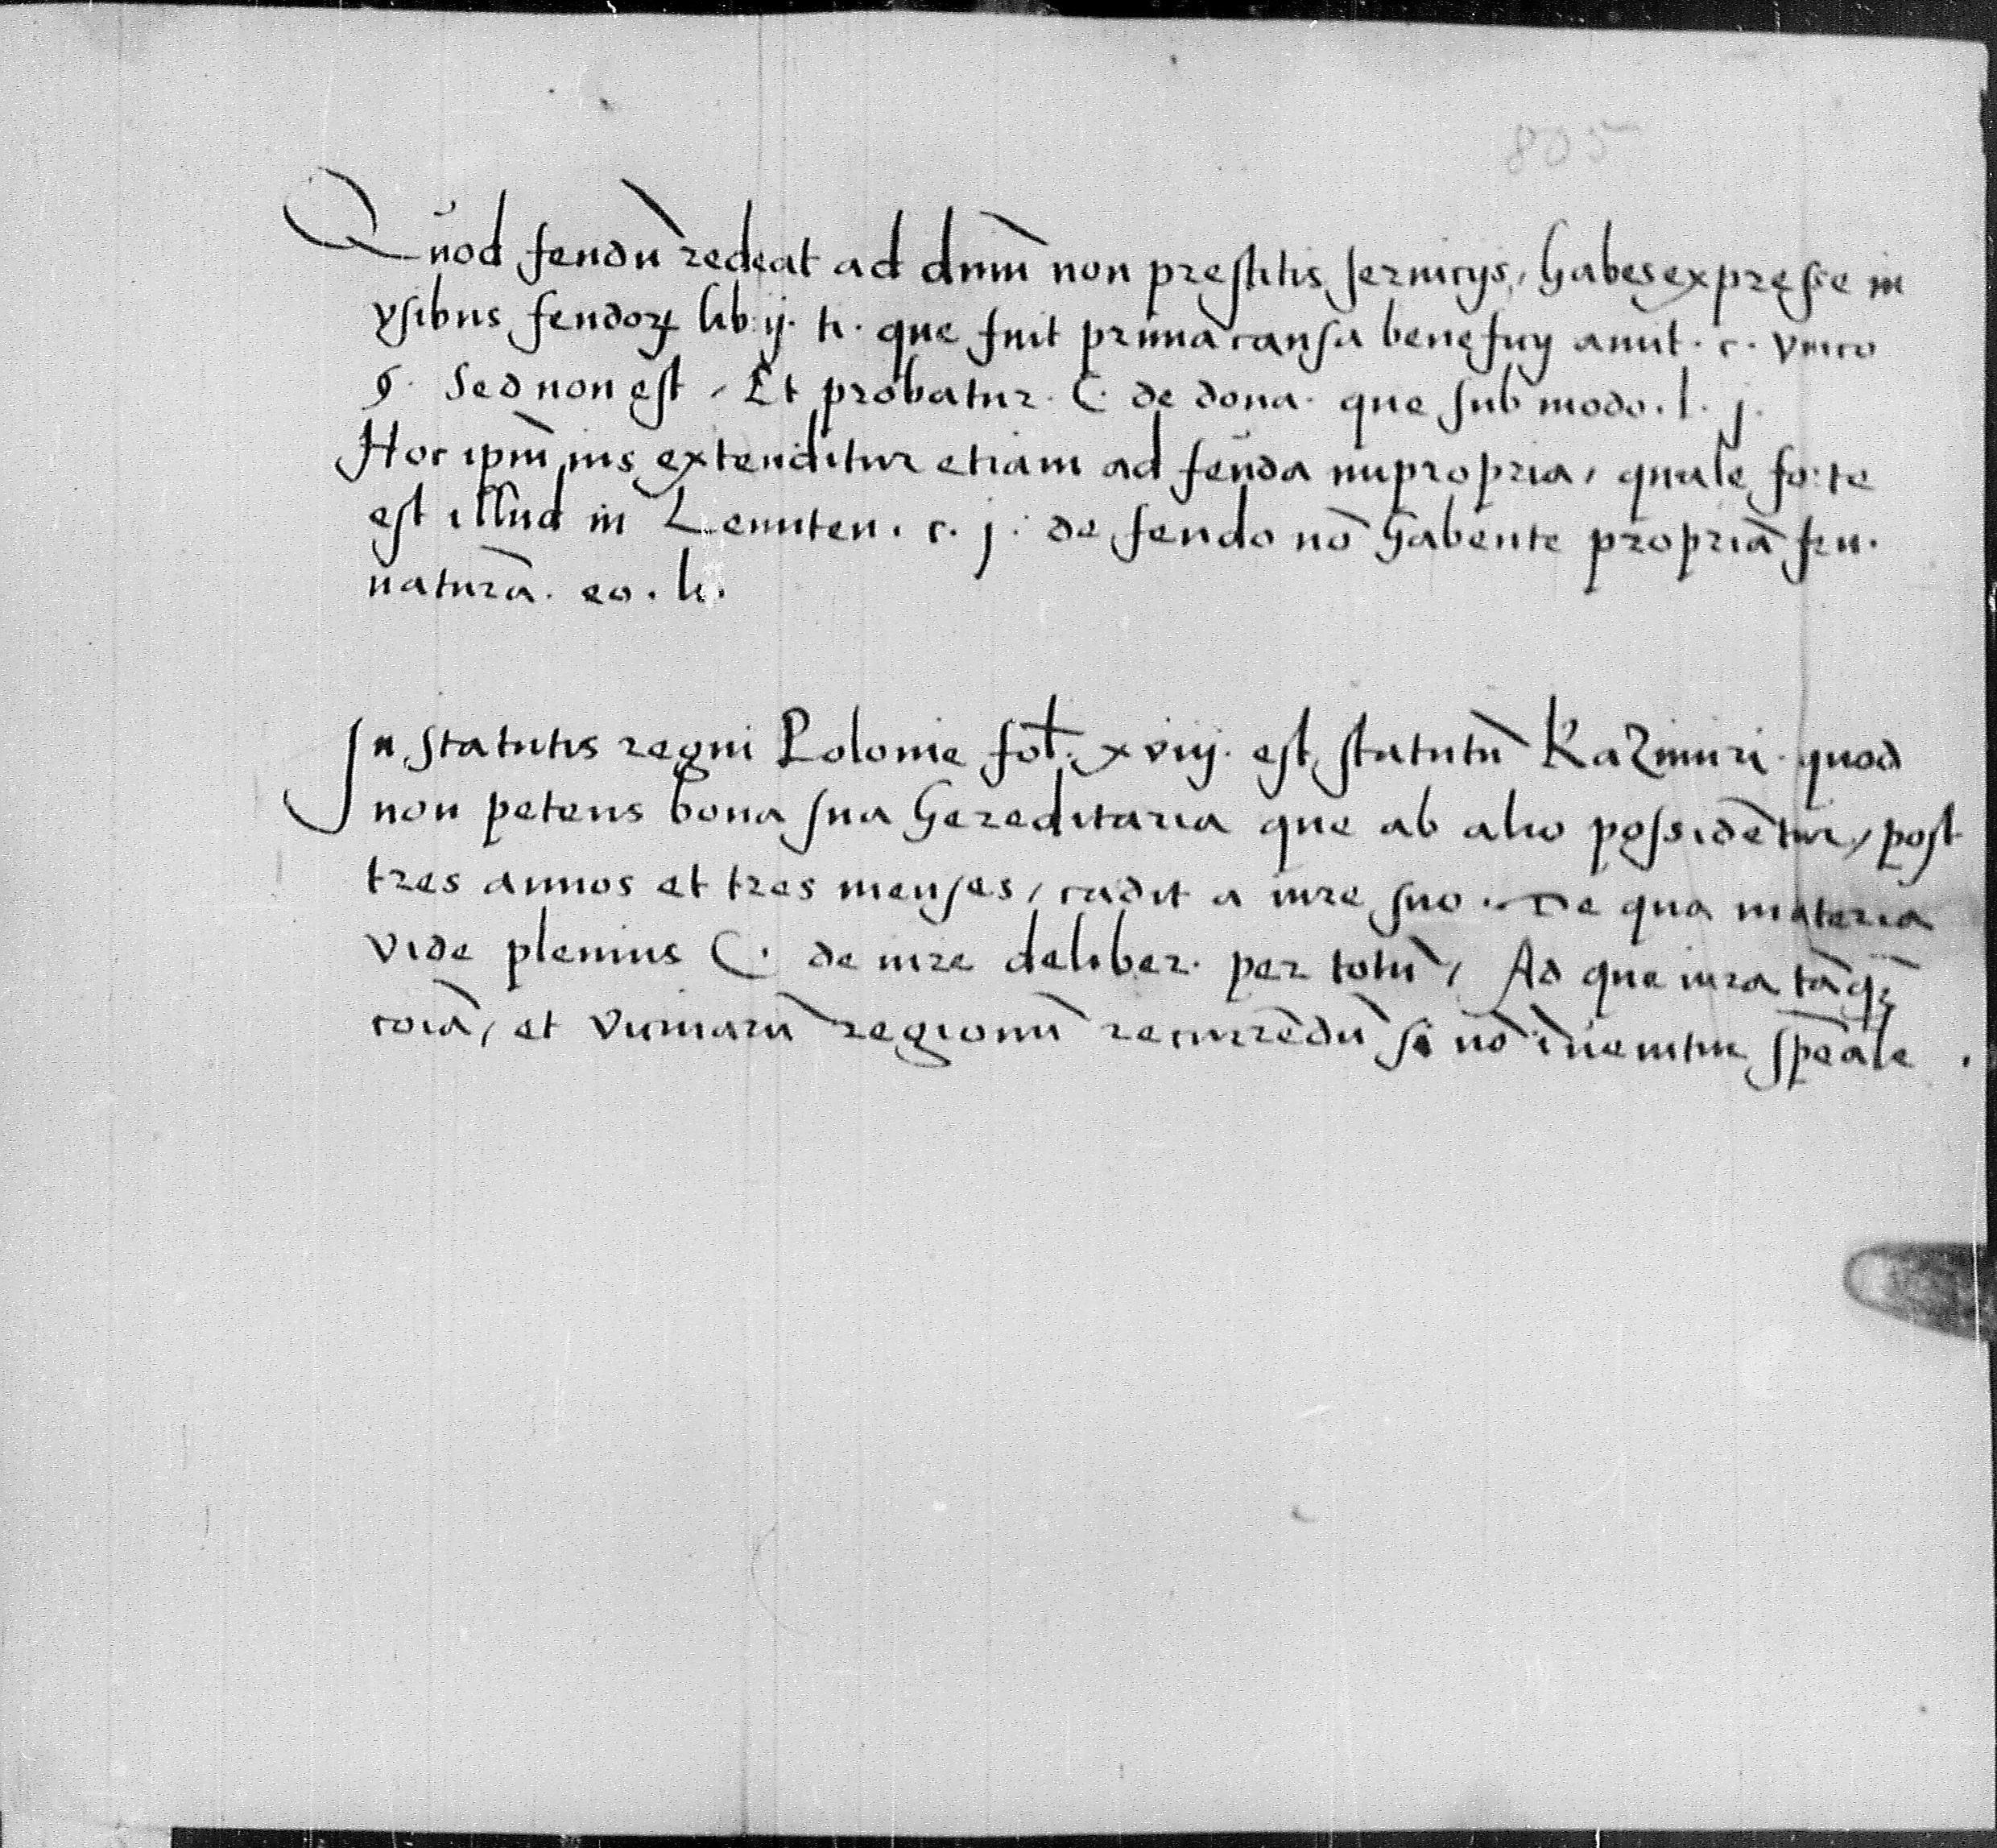 805
Quod feudũ redeat ad dnm̃ non prestitis seruicijs, habes expręsse in
vsibus feudoꝝ lib: ij. ti. que fuit prima causa beneficij amit. c. vnico
§. Sed non est, Et probatur. C. de dona. que sub modo. l. j.
Hoc ipm̃ ius extenditur etiam ad feuda impropria, quale forte
est illud in Lemten. c. j. de feudo nõ habente propriã feu.
naturã. eo. li.
In statutis regni Polonie fol. xviij. est statutũ Kazimiri quod
non petens bona sua hereditaria que ab alio possidẽtur, post
tres annos et tres menses, cadit a iure suo. De qua materia
vide plenius C. de iure deliber. per totũ, Ad que iura tãqꝫ
coĩa, et vicinarũ regionũ recurrẽdũ si nõ ĩuenitur sp̃eale.